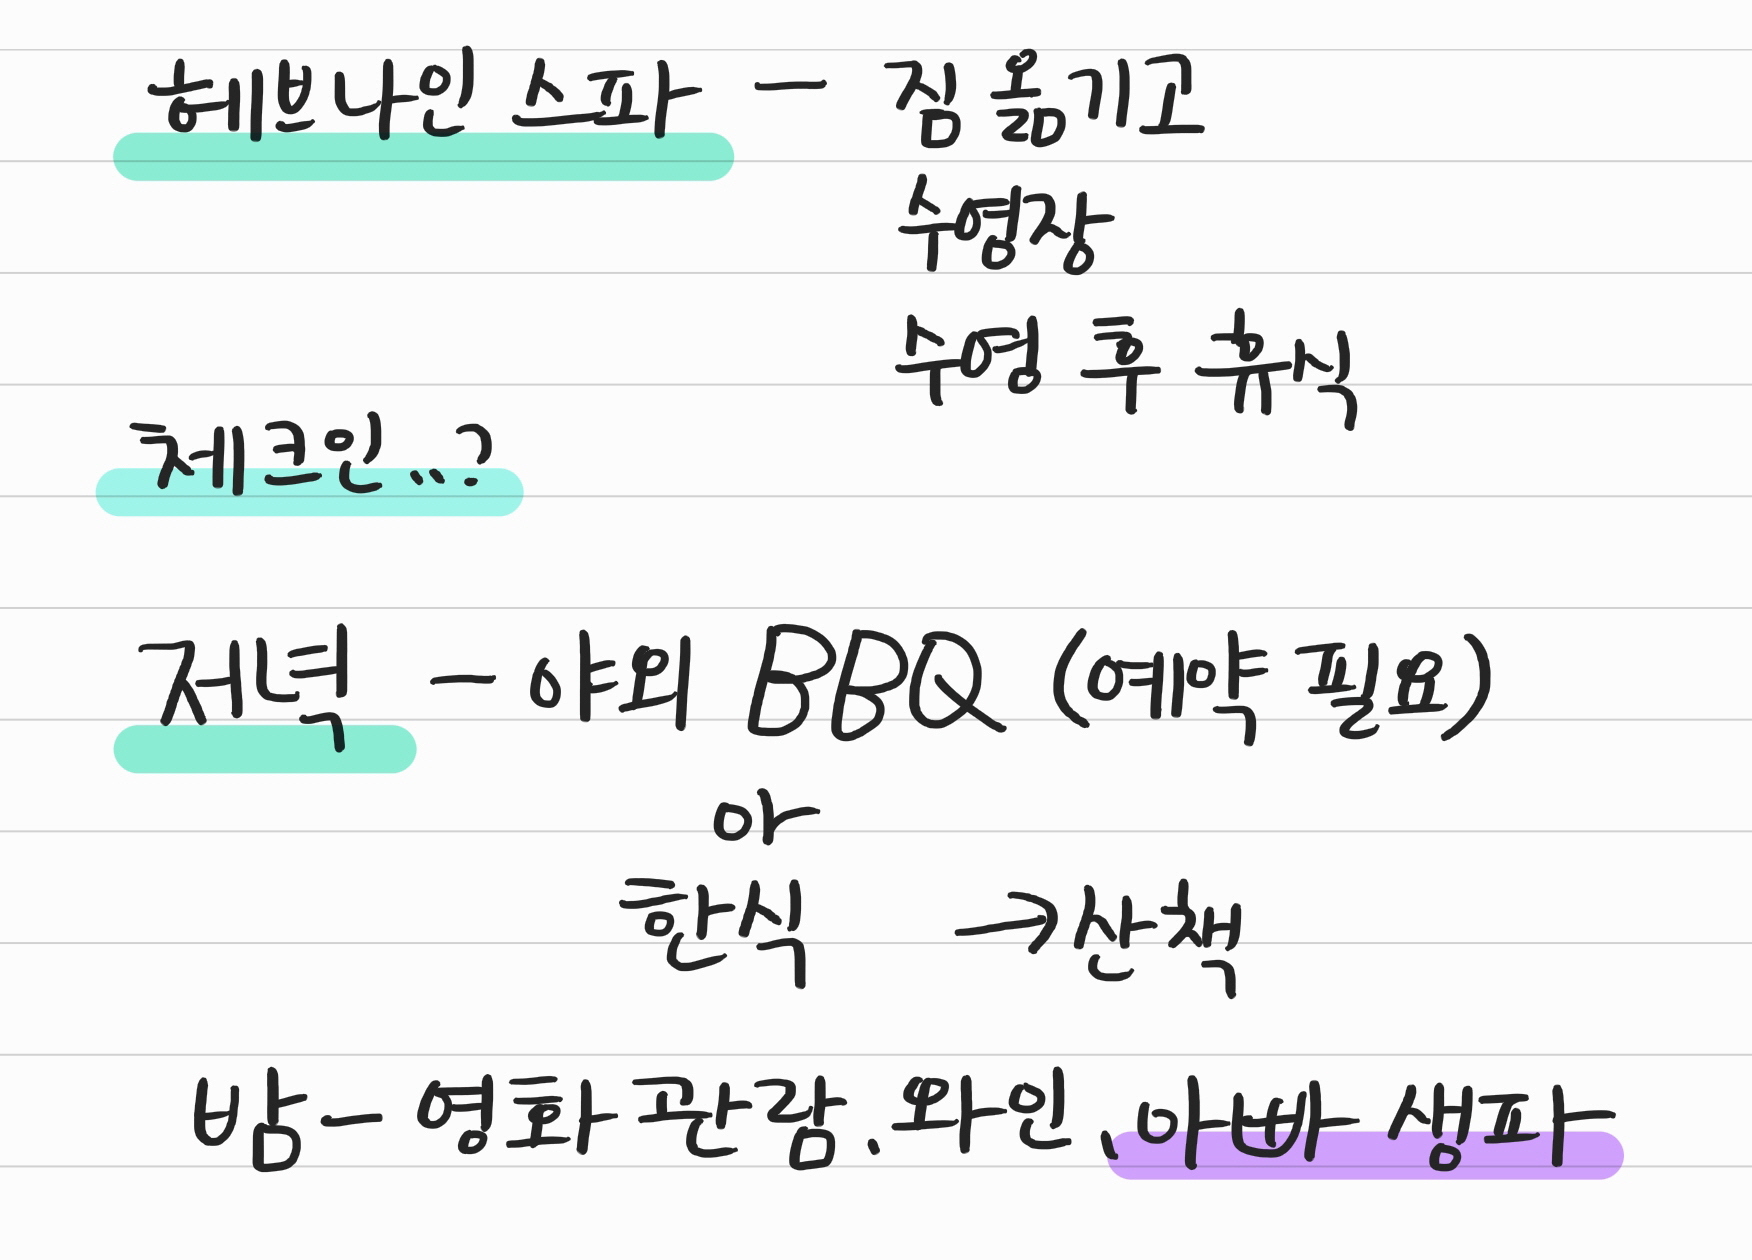 헤브나인 스파 - 짐 옮기고
수영장
수영 후 휴식
체크인..?
저녁 - 야외 BBQ (예약 필요)
아
한식 → 산책
밤 - 영화 관람. 와인. 아빠 생파